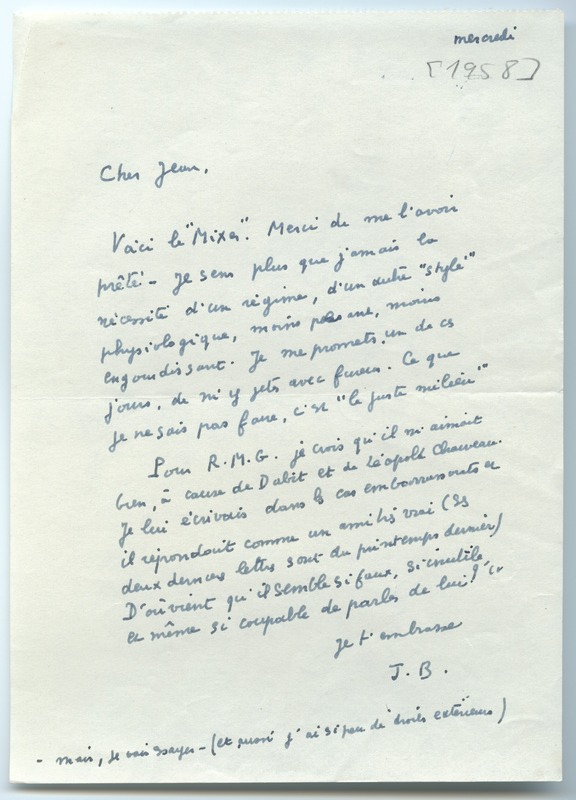 mercredi
[1958]
Cher Jean,
Voici le "Mixer". Merci de me l'avoir
prêté - Je sens plus que jamais la
nécessité d'un régime, d'un autre "style"
physiologique, moins pesant, moins
engourdissant. Je me promets, un de ces
jours, de m'y jeter avec fureur. Ce que
je ne sais pas faire, c'est "le juste milieu"
Pour R.M.G. je crois qu'il m'aimait
bien, à cause de Dabit et de Léopold Chauveau.
Je lui écrivais dans les cas embarrassants et
il répondait comme un ami très vrai (Ses
deux dernières lettres sont du printemps dernier)
D'où vient qu'il semble si faux, si inutile
et même si coupable de parler de lui?
Je t'embrasse
J. B.
- mais, je vais essayer - (et puis j'ai si peu de droits extérieurs)